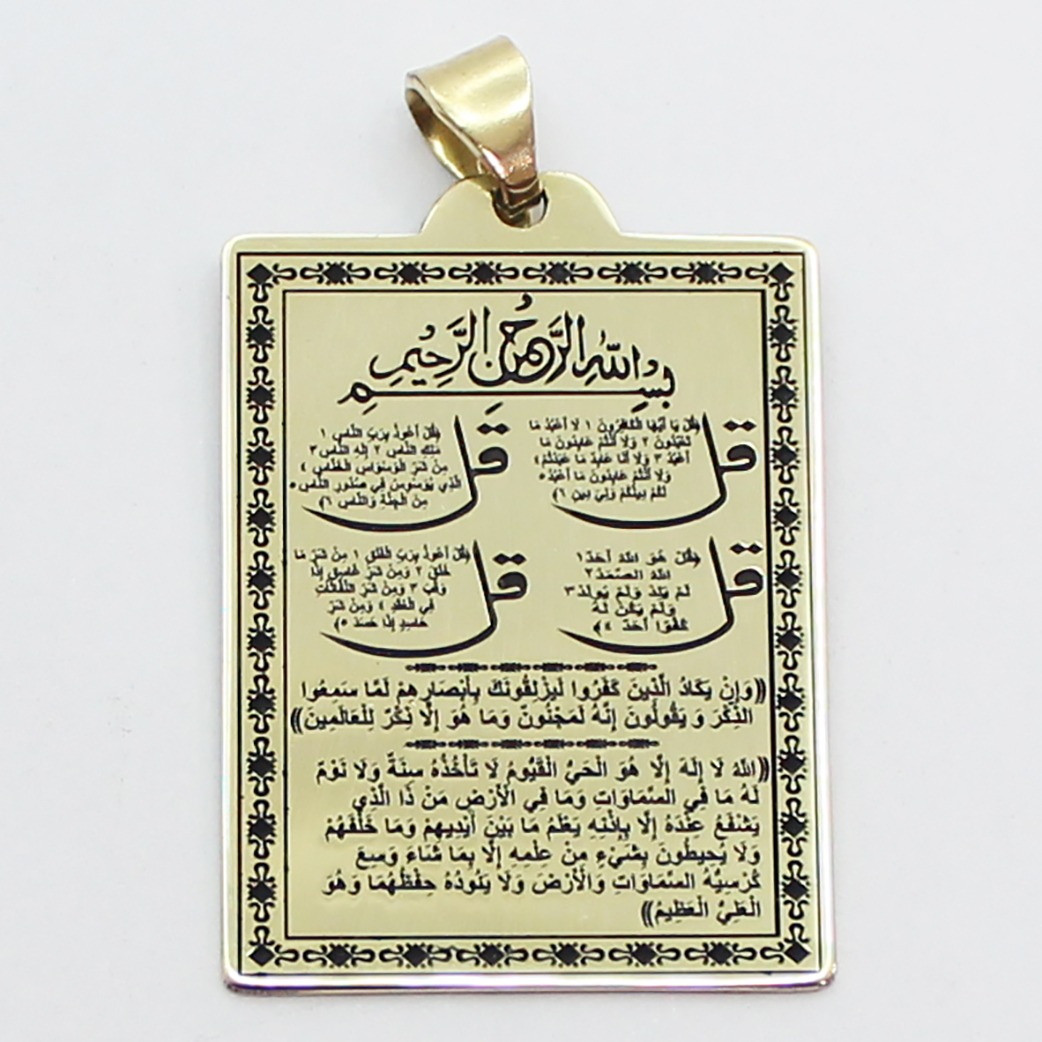 بِسْمِ اللهِ الرَّحْمنِ الرَّحِيمِ
قل
﴿قُلْ يَا أَيُّهَا الْكَافِرُونَ ١ لَا أَعْبُدُ مَا
تَعْبُدُونَ ٢ وَلَا أَنْتُمْ عَابِدُونَ مَا
أَعْبُدُ ٣ وَلَا أَنَا عَابِدٌ مَا عَبَدْتُمْ ٤
وَلَا أَنْتُمْ عَابِدُونَ مَا أَعْبُدُ ٥
لَكُمْ دِينُكُمْ وَلِيَ دِينِ ٦﴾
قل
﴿قُلْ أَعُوذُ بِرَبِّ النَّاسِ ١
مَلِكِ النَّاسِ ٢ إِلَهِ النَّاسِ ٣
مِنْ شَرِّ الْوَسْوَاسِ الْخَنَّاسِ ٤
الَّذِي يُوَسْوِسُ فِي صُدُورِ النَّاسِ ٥
مِنَ الْجِنَّةِ وَالنَّاسِ ٦﴾
قل
﴿قُلْ هُوَ اللَّهُ أَحَدٌ ١
اللَّهُ الصَّمَدُ ٢
لَمْ يَلِدْ وَلَمْ يُولَدْ ٣
وَلَمْ يَكُنْ لَهُ
كُفُوًا أَحَدٌ ٤﴾
قل
﴿قُلْ أَعُوذُ بِرَبِّ الْفَلَقِ ١ مِنْ شَرِّ مَا
خَلَقَ ٢ وَمِنْ شَرِّ غَاسِقٍ إِذَا
وَقَبَ ٣ وَمِنْ شَرِّ النَّفَّاثَاتِ
فِي الْعُقَدِ ٤ وَمِنْ شَرِّ
حَاسِدٍ إِذَا حَسَدَ ٥﴾
﴿وَإِنْ يَكَادُ الَّذِينَ كَفَرُوا لَيُزْلِقُونَكَ بِأَبْصَارِهِمْ لَمَّا سَمِعُوا
الذِّكْرَ وَ يَقُولُونَ إِنَّهُ لَمَجْنُونٌ وَمَا هُوَ إِلَّا ذِكْرٌ لِلْعَالَمِينَ﴾
﴿اللَّهُ لَا إِلَهَ إِلَّا هُوَ الْحَيُّ الْقَيُّومُ لَا تَأْخُذُهُ سِنَةٌ وَلَا نَوْمٌ
لَهُ مَا فِي السَّمَاوَاتِ وَمَا فِي الْأَرْضِ مَنْ ذَا الَّذِي
يَشْفَعُ عِنْدَهُ إِلَّا بِإِذْنِهِ يَعْلَمُ مَا بَيْنَ أَيْدِيهِمْ وَمَا خَلْفَهُمْ
وَلَا يُحِيطُونَ بِشَيْءٍ مِنْ عِلْمِهِ إِلَّا بِمَا شَاءَ وَسِعَ
كُرْسِيُّهُ السَّمَاوَاتِ وَالْأَرْضَ وَلَا يَئُودُهُ حِفْظُهُمَا وَهُوَ
الْعَلِيُّ الْعَظِيمُ﴾